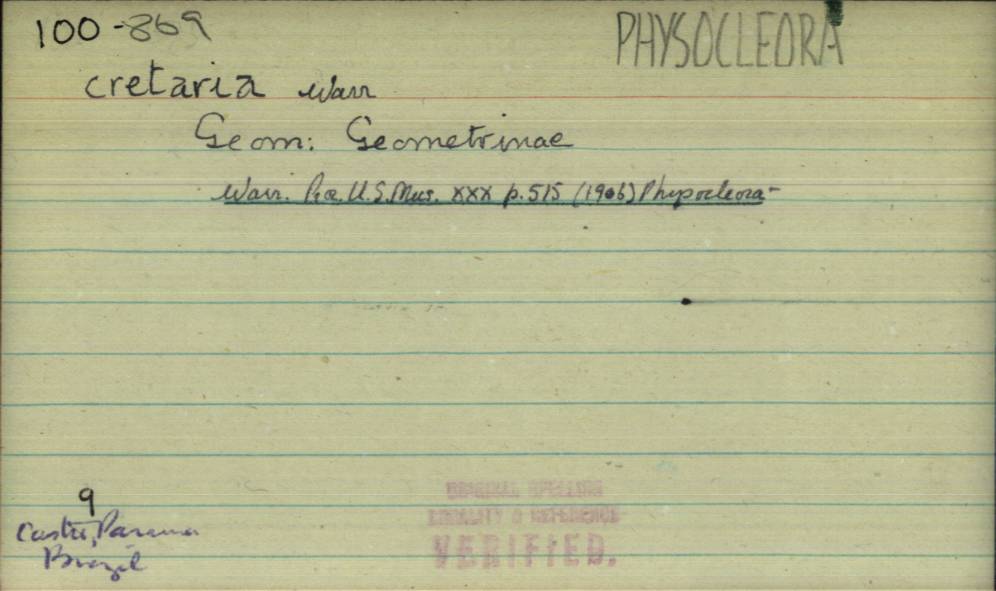 100-869
PHYSOCLEORA
cretaria Warr
Geom: Geometrinae
Warr. Proc. U.S. Mus. XXX p. 515 (1906) Physocleora-
9
Castro, Parana
Brazil
ORIGINAL SPELLING
LOCALITY & REFERENCE
VERIFIED.